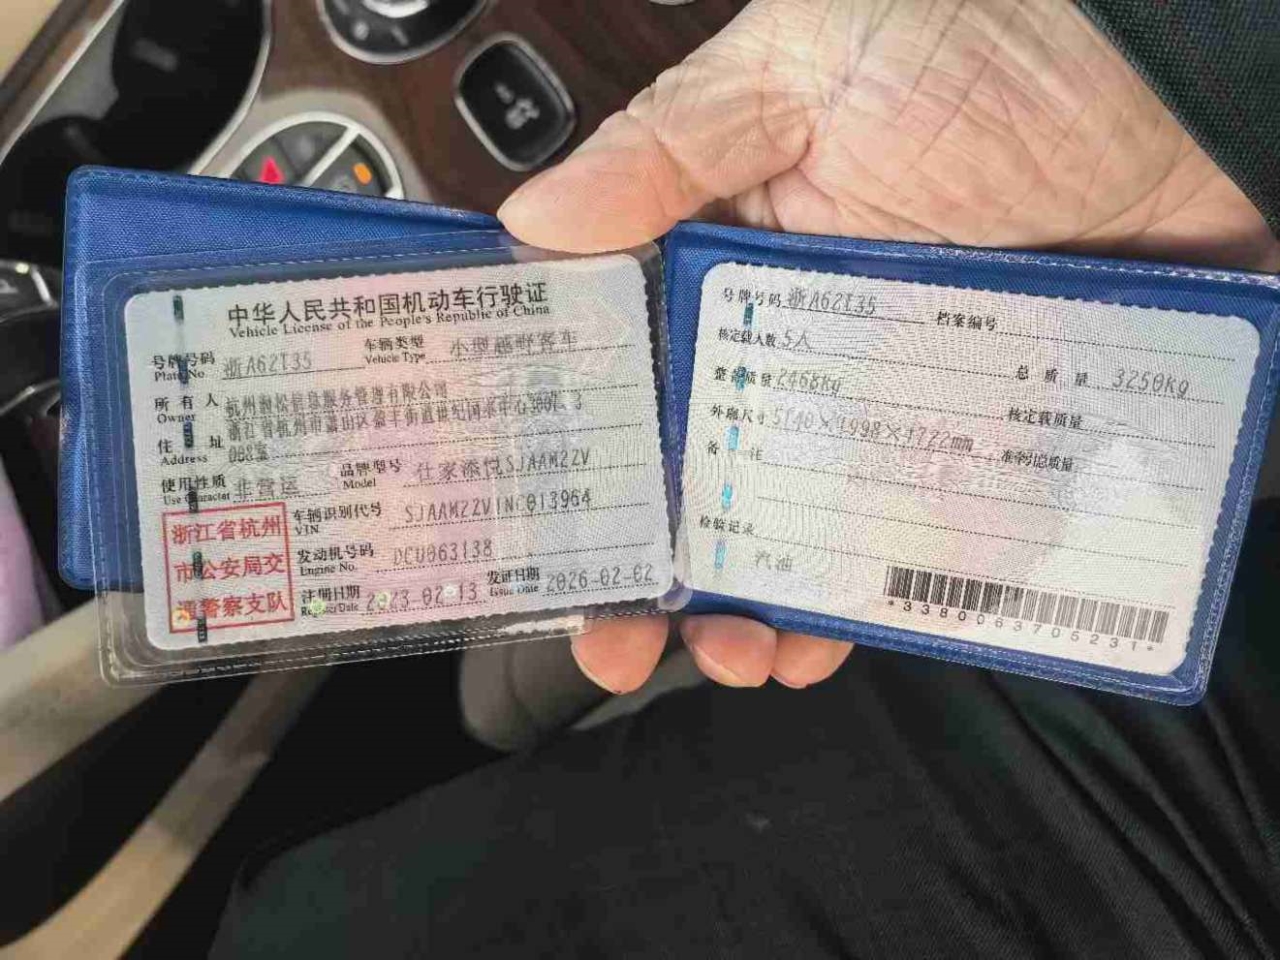 中华人民共和国机动车行驶证
Vehicle License of the People's Republic of China
号牌号码 浙A62T35 车辆类型 小型越野客车
Plate No. Vehicle Type
所有人 杭州 服务管理有限公司
Owner
住址 浙江省杭州市萧山区盈丰街道世纪
Address 008室
使用性质 非营运 品牌型号 仕家添悦SJAAM2ZV
Use Character Model
车辆识别代号 SJAAM2ZV1NC013964
VIN
发动机号码 DCU063138
Engine No.
注册日期 2023-02-13 发证日期 2026-02-02
Register Date Issue Date
浙江省杭州
市公安局交
通警察支队
号牌号码 浙A62T35 档案编号
核定载人数 5人 总质量 3250kg
整备质量 2468kg 核定载质量
外廓尺寸 5140×1998×1722mm 准牵引总质量
备注
检验记录
汽油
*3380063705231*